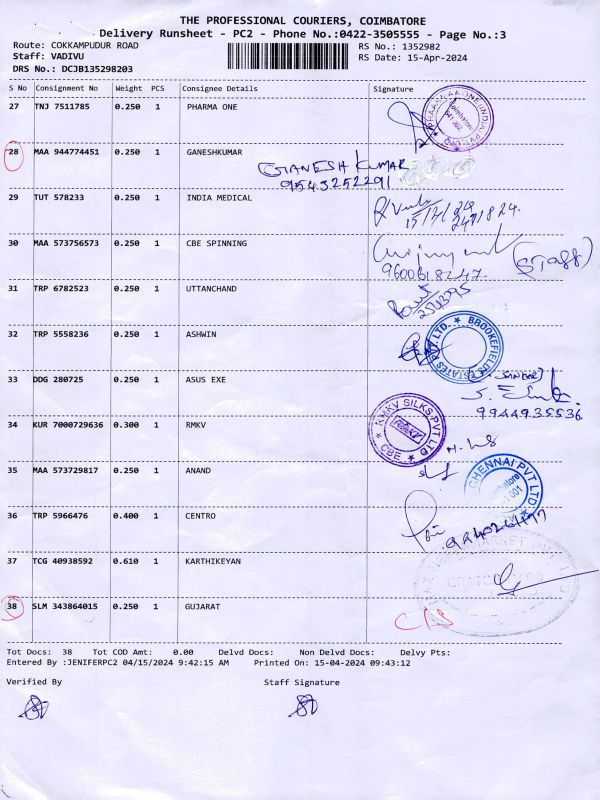 THE PROFESSIONAL COURIERS, COIMBATORE
Delivery Runsheet - PC2 - Phone No.:0422-3505555 - Page No.:3
Route: COKKAMPUDUR ROAD
RS No.: 1352982
Staff: VADIVU
RS Date: 15-Apr-2024
DRS No.: DCJB135298203
S No Consignment No Weight PCS Consignee Details Signature
27 TNJ 7511785 0.250 1 PHARMA ONE
28 MAA 944774451 0.250 1 GANESHKUMAR
GANESH KUMAR
9543252291
29 TUT 578233 0.250 1 INDIA MEDICAL
15/4/24
30 MAA 573756573 0.250 1 CBE SPINNING
(STAFF)
31 TRP 6782523 0.250 1 UTTANCHAND
32 TRP 5558236 0.250 1 ASHWIN
BROOKEFIELDS ESTATES PVT. LTD.
33 DDG 280725 0.250 1 ASUS EXE
9944935536
34 KUR 7000729636 0.300 1 RMKV
RMKV SILKS PVT LTD
RMKV
CBE
35 MAA 573729817 0.250 1 ANAND
CHENNAI PVT LTD
36 TRP 5966476 0.400 1 CENTRO
37 TCG 40938592 0.610 1 KARTHIKEYAN
38 SLM 343864015 0.250 1 GUJARAT
Tot Docs: 38 Tot COD Amt: 0.00 Delvd Docs: Non Delvd Docs: Delvy Pts:
Entered By :JENIFERPC2 04/15/2024 9:42:15 AM Printed On: 15-04-2024 09:43:12
Verified By Staff Signature